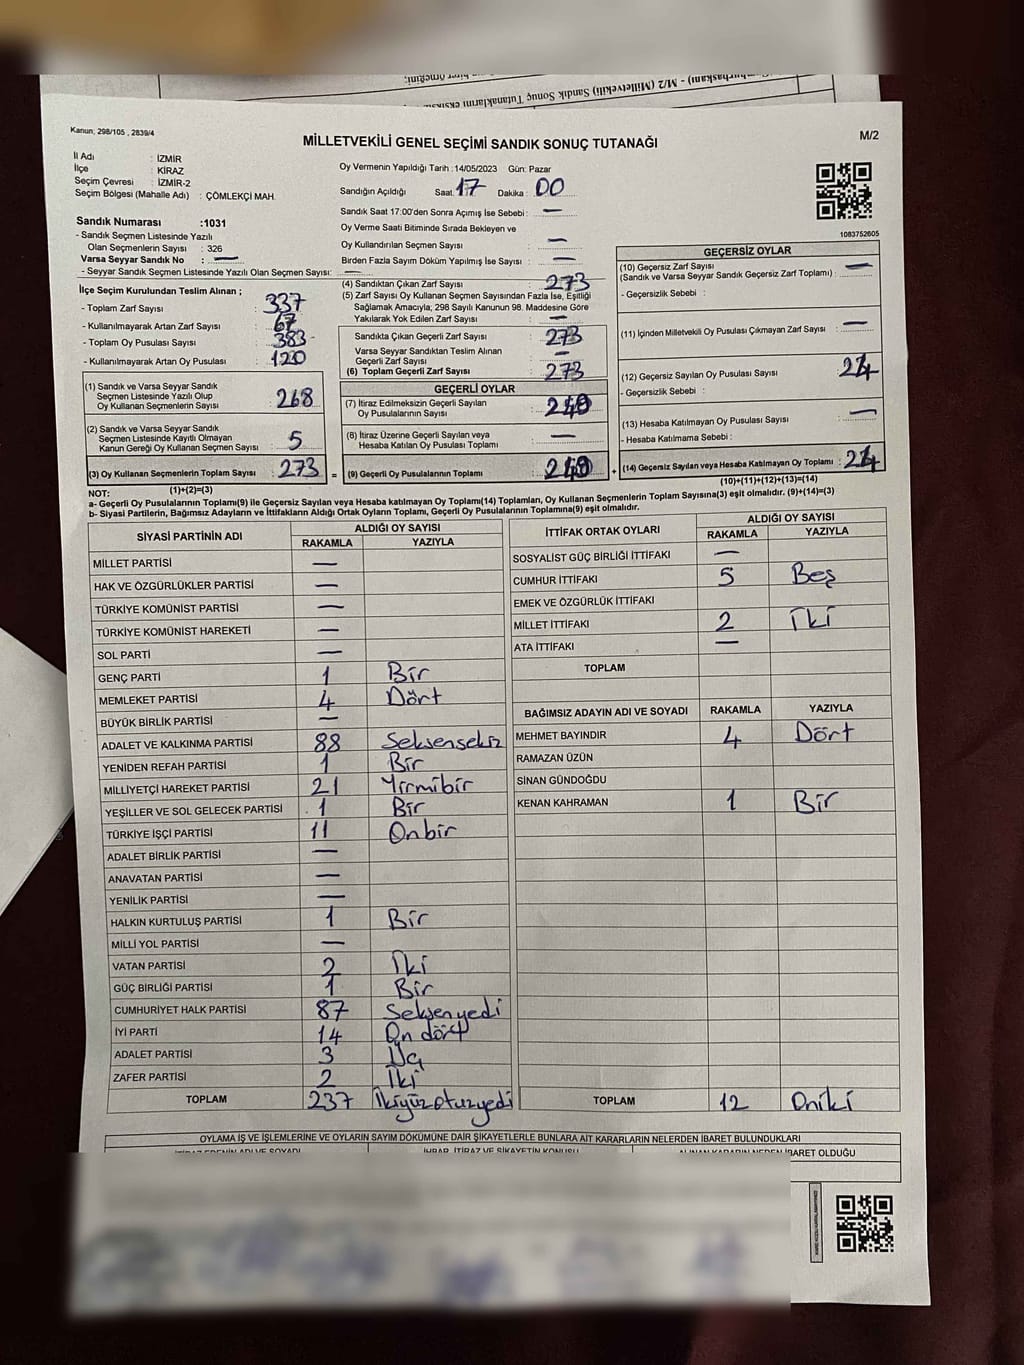 Kanun; 298/105 , 2839/4
MİLLETVEKİLİ GENEL SEÇİMİ SANDIK SONUÇ TUTANAĞI
M/2
İl Adı : İZMİR
İlçe : KİRAZ
Seçim Çevresi : İZMİR-2
Seçim Bölgesi (Mahalle Adı) : ÇÖMLEKÇİ MAH.
Oy Vermenin Yapıldığı Tarih :14/05/2023 Gün: Pazar
Sandığın Açıldığı Saat: 17 Dakika : 00
Sandık Saat 17:00'den Sonra Açımış İse Sebebi : —
Oy Verme Saati Bitiminde Sırada Bekleyen ve
Oy Kullandırılan Seçmen Sayısı : —
Birden Fazla Sayım Döküm Yapılmış İse Sayısı : —
1083752605
Sandık Numarası :1031
- Sandık Seçmen Listesinde Yazılı
Olan Seçmenlerin Sayısı : 326
Varsa Seyyar Sandık No : —
- Seyyar Sandık Seçmen Listesinde Yazılı Olan Seçmen Sayısı: —
İlçe Seçim Kurulundan Teslim Alınan ;
- Toplam Zarf Sayısı : 337
- Kullanılmayarak Artan Zarf Sayısı : 67
- Toplam Oy Pusulası Sayısı : 383
- Kullanılmayarak Artan Oy Pusulası : 120
(1) Sandık ve Varsa Seyyar Sandık
Seçmen Listesinde Yazılı Olup
Oy Kullanan Seçmenlerin Sayısı 268
(2) Sandık ve Varsa Seyyar Sandık
Seçmen Listesinde Kayıtlı Olmayan
Kanun Gereği Oy Kullanan Seçmen Sayısı 5
(3) Oy Kullanan Seçmenlerin Toplam Sayısı 273 =
(1)+(2)=(3)
(4) Sandıktan Çıkan Zarf Sayısı : 273
(5) Zarf Sayısı Oy Kullanan Seçmen Sayısından Fazla İse, Eşitliği
Sağlamak Amacıyla; 298 Sayılı Kanunun 98. Maddesine Göre
Yakılarak Yok Edilen Zarf Sayısı : —
Sandıkta Çıkan Geçerli Zarf Sayısı : 273
Varsa Seyyar Sandıktan Teslim Alınan
Geçerli Zarf Sayısı : —
(6) Toplam Geçerli Zarf Sayısı : 273
GEÇERLİ OYLAR
(7) İtiraz Edilmeksizin Geçerli Sayılan
Oy Pusulalarının Sayısı :
(8) İtiraz Üzerine Geçerli Sayılan veya
Hesaba Katılan Oy Pusulası Toplamı : —
(9) Geçerli Oy Pusulalarının Toplamı : +
GEÇERSİZ OYLAR
(10) Geçersiz Zarf Sayısı
(Sandık ve Varsa Seyyar Sandık Geçersiz Zarf Toplamı) : —
- Geçersizlik Sebebi :
(11) İçinden Milletvekili Oy Pusulası Çıkmayan Zarf Sayısı : —
(12) Geçersiz Sayılan Oy Pusulası Sayısı :
- Geçersizlik Sebebi :
(13) Hesaba Katılmayan Oy Pusulası Sayısı : —
- Hesaba Katılmama Sebebi :
(14) Geçersiz Sayılan veya Hesaba Katılmayan Oy Toplamı :
(10)+(11)+(12)+(13)=(14)
NOT:
a- Geçerli Oy Pusulalarının Toplamı(9) ile Geçersiz Sayılan veya Hesaba katılmayan Oy Toplamı(14) Toplamları, Oy Kullanan Seçmenlerin Toplam Sayısına(3) eşit olmalıdır. (9)+(14)=(3)
b- Siyasi Partilerin, Bağımsız Adayların ve İttifakların Aldığı Ortak Oyların Toplamı, Geçerli Oy Pusulalarının Toplamına(9) eşit olmalıdır.
SİYASİ PARTİNİN ADI ALDIĞI OY SAYISI
RAKAMLA YAZIYLA
MİLLET PARTİSİ —
HAK VE ÖZGÜRLÜKLER PARTİSİ —
TÜRKİYE KOMÜNİST PARTİSİ —
TÜRKİYE KOMÜNİST HAREKETİ —
SOL PARTİ —
GENÇ PARTİ 1 Bir
MEMLEKET PARTİSİ 4 Dört
BÜYÜK BİRLİK PARTİSİ —
ADALET VE KALKINMA PARTİSİ 88 Seksensekiz
YENİDEN REFAH PARTİSİ 1 Bir
MİLLİYETÇİ HAREKET PARTİSİ 21 Yirmibir
YEŞİLLER VE SOL GELECEK PARTİSİ 1 Bir
TÜRKİYE İŞÇİ PARTİSİ 11 Onbir
ADALET BİRLİK PARTİSİ —
ANAVATAN PARTİSİ —
YENİLİK PARTİSİ —
HALKIN KURTULUŞ PARTİSİ 1 Bir
MİLLİ YOL PARTİSİ —
VATAN PARTİSİ 2 İki
GÜÇ BİRLİĞİ PARTİSİ 1 Bir
CUMHURİYET HALK PARTİSİ 87 Seksenyedi
İYİ PARTİ 14 On dört
ADALET PARTİSİ 3 Üç
ZAFER PARTİSİ 2 İki
TOPLAM 237 İkiyüzotuzyedi
İTTİFAK ORTAK OYLARI ALDIĞI OY SAYISI
RAKAMLA YAZIYLA
SOSYALİST GÜÇ BİRLİĞİ İTTİFAKI —
CUMHUR İTTİFAKI 5 Beş
EMEK VE ÖZGÜRLÜK İTTİFAKI
MİLLET İTTİFAKI 2 İki
ATA İTTİFAKI —
TOPLAM
BAĞIMSIZ ADAYIN ADI VE SOYADI RAKAMLA YAZIYLA
MEHMET BAYINDIR 4 Dört
RAMAZAN ÜZÜN
SİNAN GÜNDOĞDU
KENAN KAHRAMAN 1 Bir
TOPLAM 12 Oniki
OYLAMA İŞ VE İŞLEMLERİNE VE OYLARIN SAYIM DÖKÜMÜNE DAİR ŞİKAYETLERLE BUNLARA AİT KARARLARIN NELERDEN İBARET BULUNDUKLARI